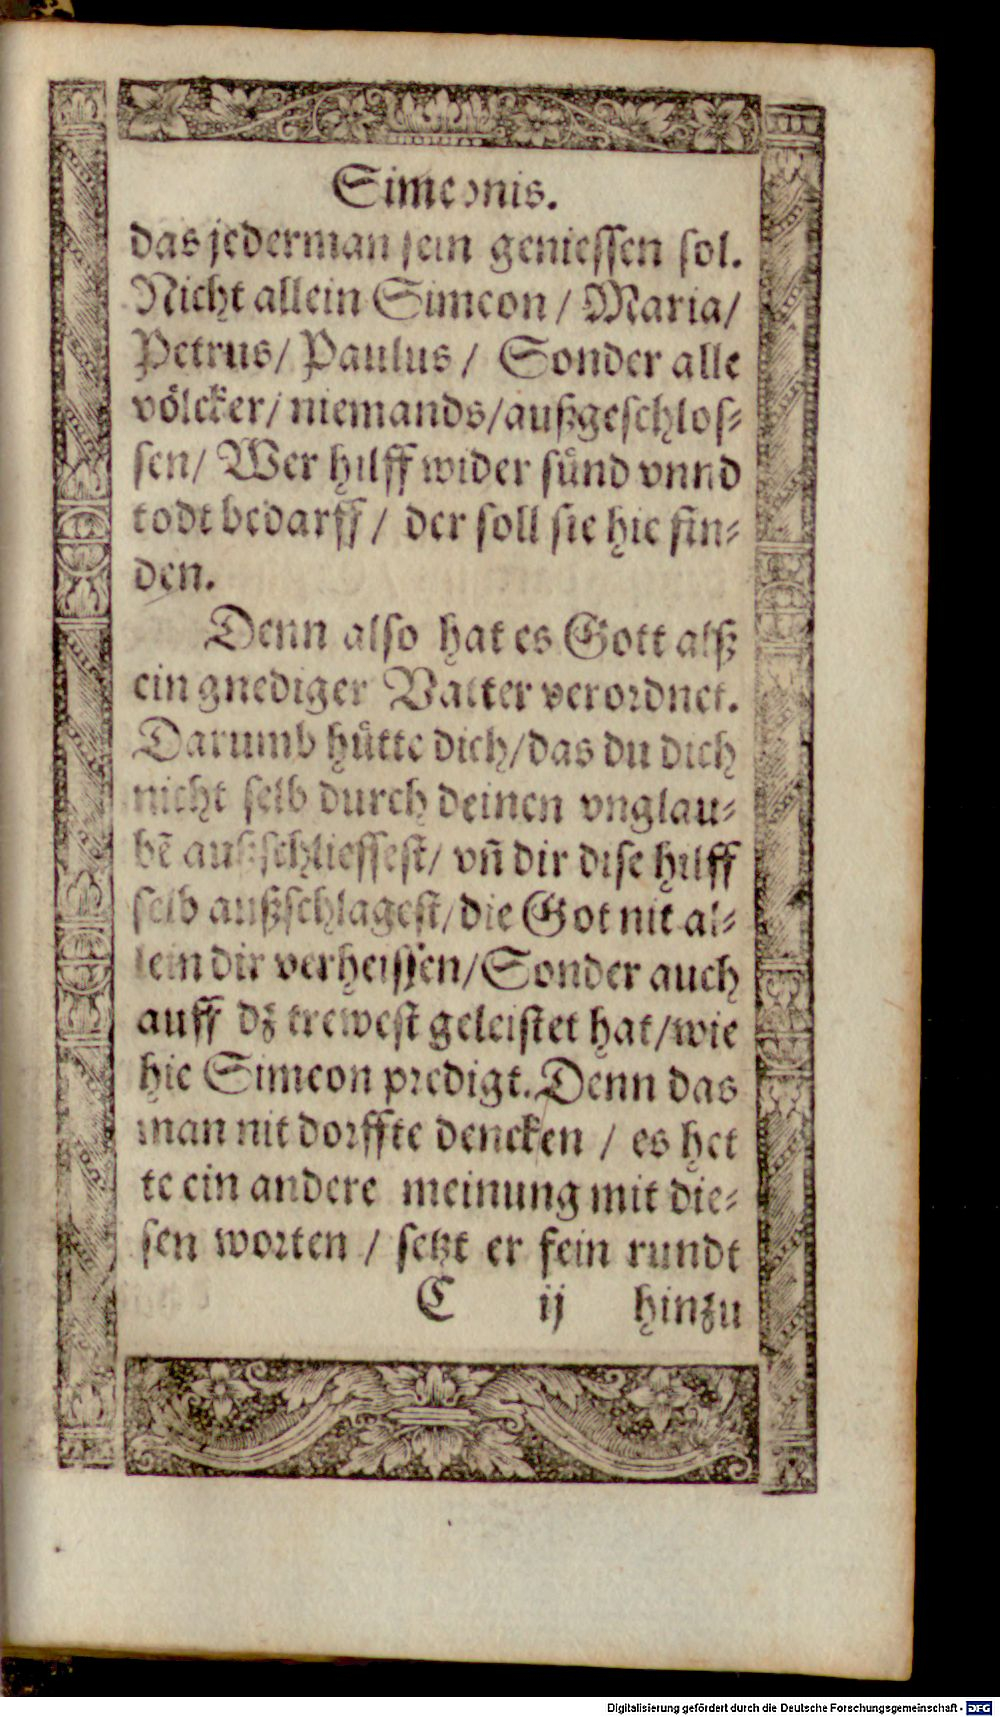 Simeonis.
das jederman sein geniessen sol.
Nicht allein Simeon / Maria/
Petrus/ Paulus / Sonder alle
voͤlcker/ niemands/außgeschlos⸗
sen/ Wer hilff wider suͤnd vnnd
todt bedarff / der soll sie hie fin⸗
den.
Denn also hat es Gott alß
ein gnediger Vatter verordnet.
Darumb huͤtte dich/das du dich
nicht selb durch deinen vnglau⸗
bẽ außschliessest/ vñ dir dise hilff
selb außschlagest/die Got nit al⸗
lein dir verheissen/Sonder auch
auff dz trewest geleistet hat/wie
hie Simeon predigt. Denn das
man nit dorffte dencken / es het
te ein andere meinung mit die⸗
sen worten / setzt er fein rundt
C ij hinzu
Digitalisierung gefördert durch die Deutsche Forschungsgemeinschaft - DFG